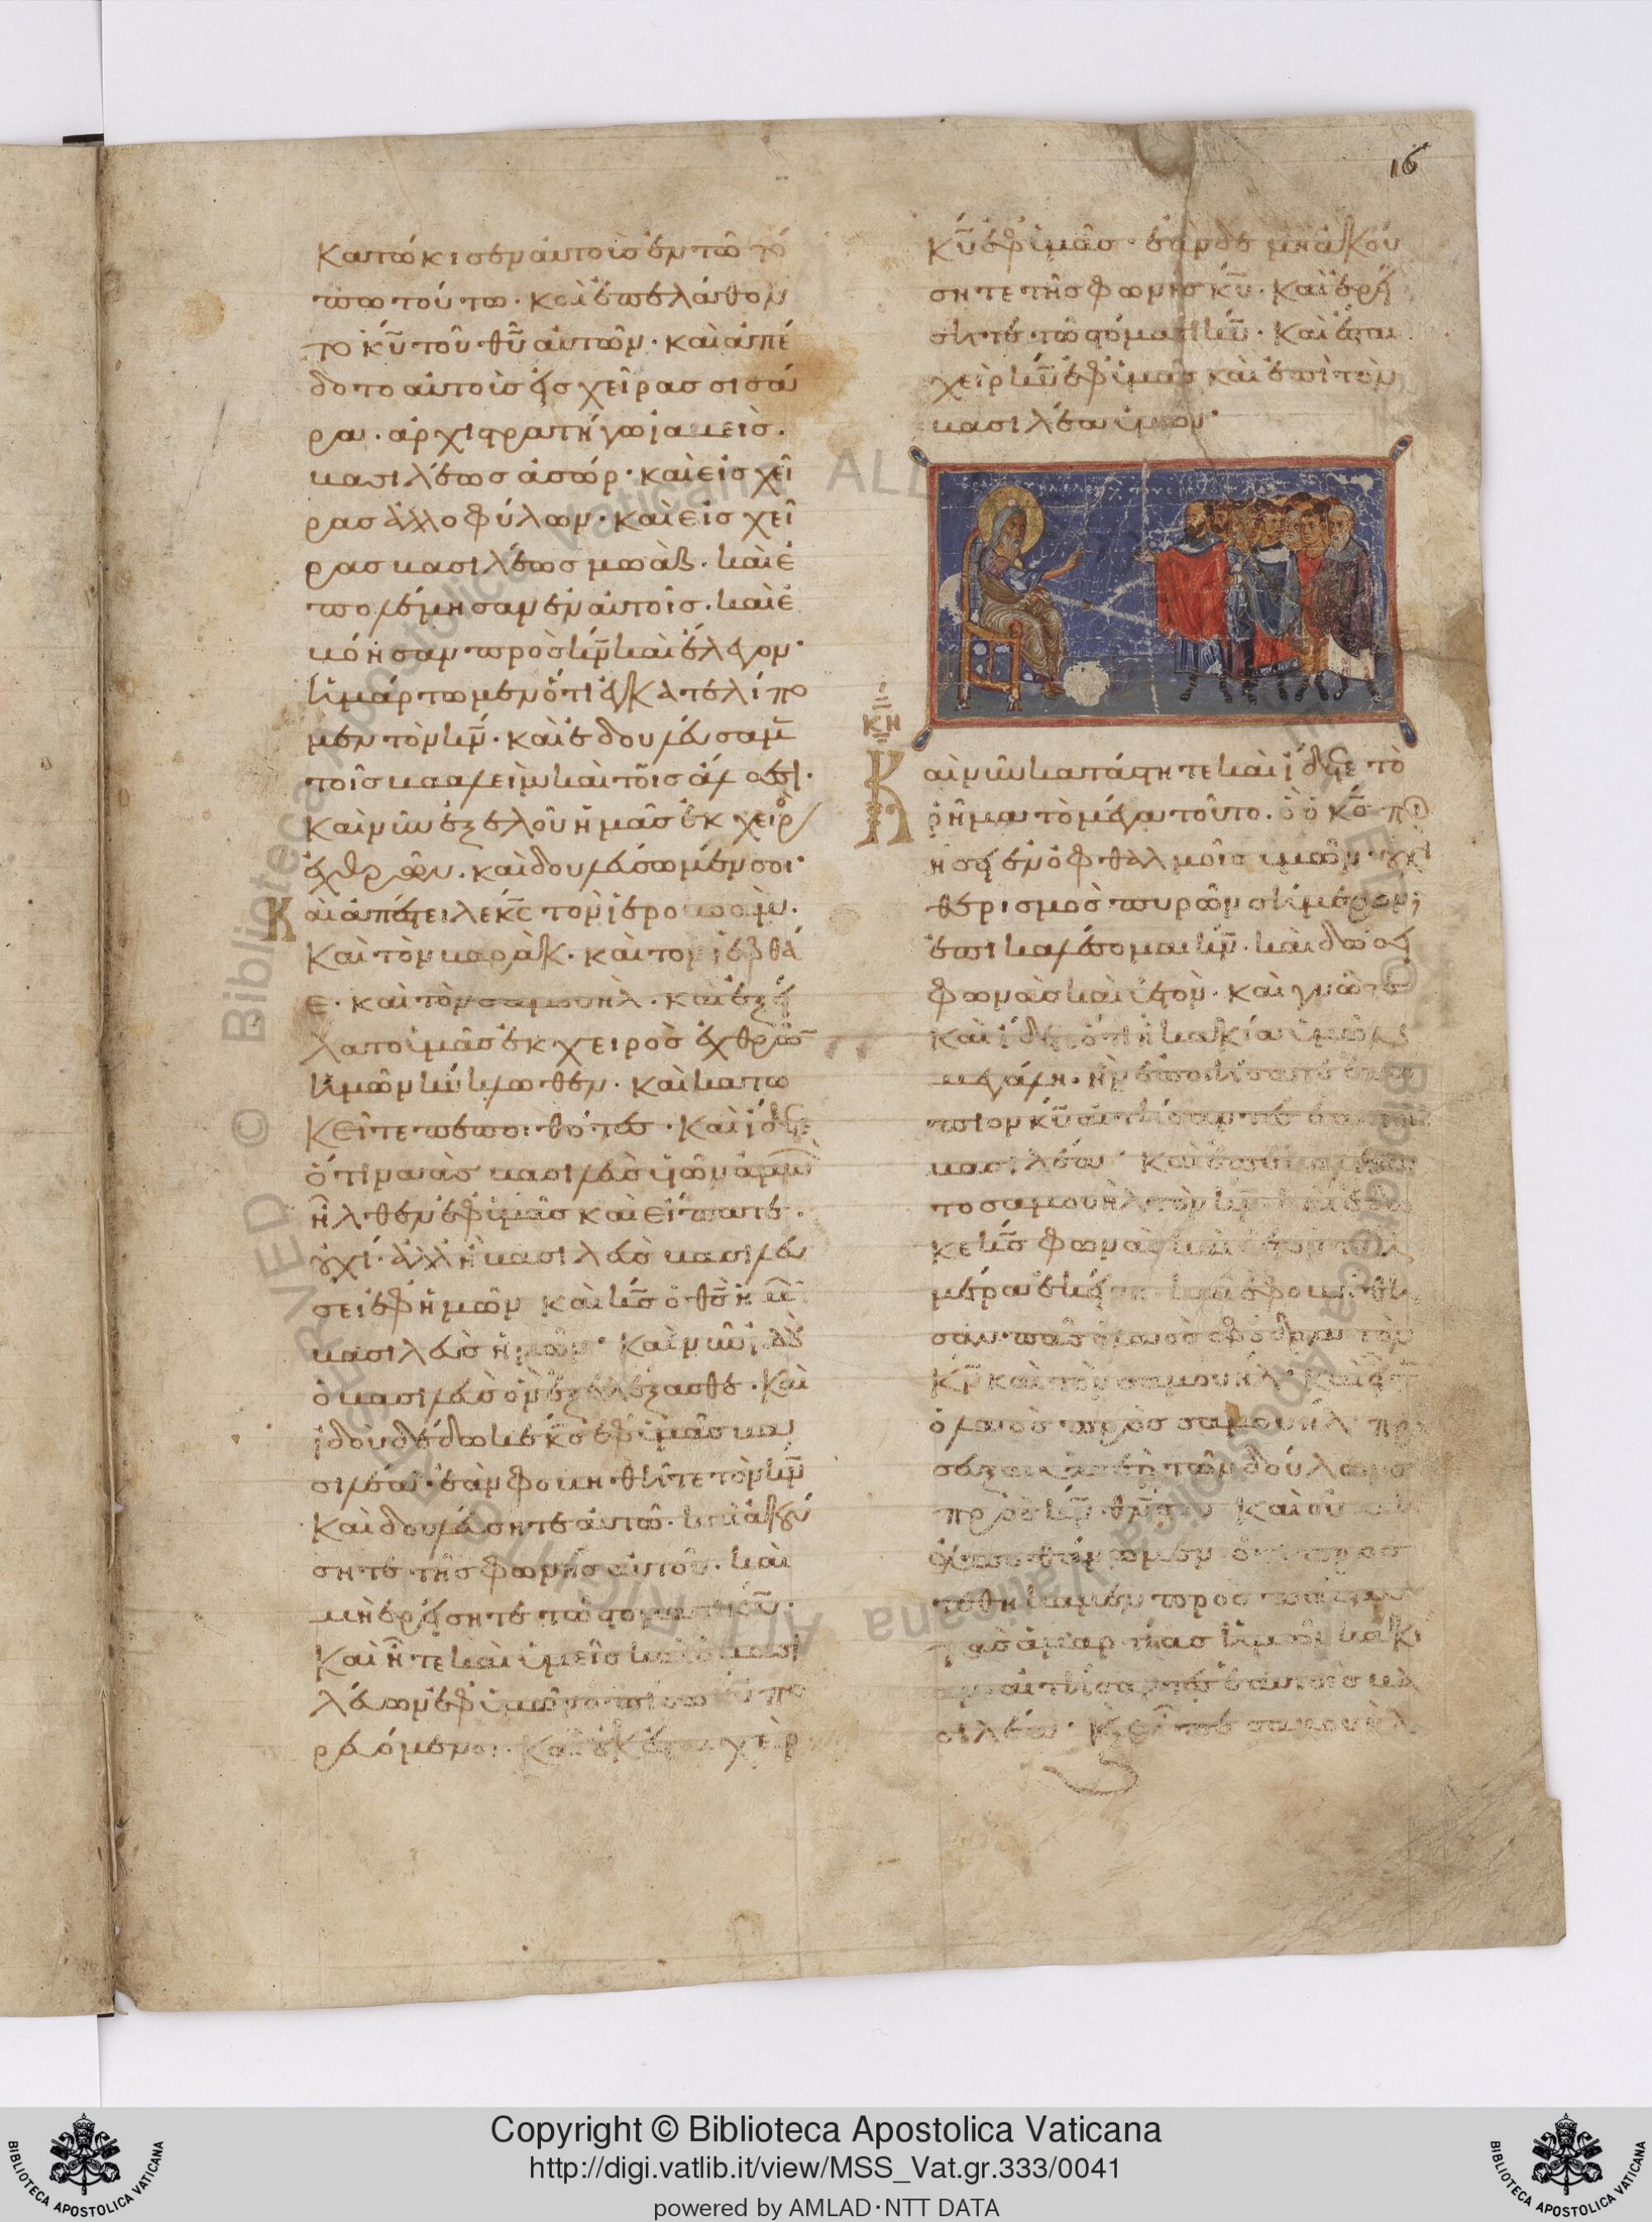 16
κατώκισεν αὐτοὺς ἐν τῶ τό
πω τούτω· καὶ ἐπελάθον
το κ̅υ̅ τοῦ θ̅υ̅ αὐτῶν· καὶ ἀπέ
δοτο αὐτοὺς εἰς χεῖρας σισά
ρα· ἀρχιστρατήγω ϊαβεὶς·
βασιλέως ἀσώρ· καὶ εἰς χεῖ
ρας ἀλλοφύλων· καὶ εἰς χεῖ
ρας βασιλέως μωάβ· καὶ ἐ
πολέμησαν ἐν αὐτοῖς· καὶ ἐ
βόησαν πρὸς κ̅ν̅ καὶ ἔλεγον·
ἡμάρτομεν ὅτι ἐγκατελίπο
μεν τὸν κ̅ν̅· καὶ ἐδουλεύσαμ̅
τοῖς βααλεὶμ καὶ τοῖς ἄλσεσι·
καὶ νῦν ἐξελοῦ ἡμᾶς ἐκ χειρὸς
ἐχθρῶν· καὶ δουλεύσωμέν σοι·
Καὶ ἀπέστειλε κ̅ς̅ τὸν ϊεροβοαμ·
καὶ τὸν βαράκ· καὶ τὸν ϊεφθά
ε· καὶ τὸν σαμουὴλ· καὶ ἐξεί
λατο ὑμᾶς ἐκ χειρὸς ἐχθρῶ̅
ἡμῶν κυκλωθεν· καὶ κατω
κεῖτε πεποιθότες· καὶ ϊδετε
ὅτι ναὰς βασιλεὺς υἱῶν ἀμμὼ̅
ἦλθεν ἐφ' ὑμᾶς καὶ εἴπατε·
οὐχί· ἀλλ' ἢ βασιλεὺς βασιλεύ
σει ἐφ' ἡμῶν καὶ κ̅ς̅ ὁ θ̅ς̅ ἡμῶ̅
βασιλεὺς ἡμῶν· καὶ νῦν ϊδοὺ
ὁ βασιλεὺς ὃν ἐξελέξασθε· καὶ
ϊδοὺ δέδωκε κ̅ς̅ ἐφ' ὑμᾶς βα
σιλέα· ἐὰν φοβηθῆτε τὸν κ̅ν̅
καὶ δουλεύσητε αὐτῶ· καὶ ἀκού
σητε τῆς φωνῆς αὐτοῦ· καὶ
μὴ ἐρίσητε τῶ στόματι κ̅υ̅·
καὶ ἦτε καὶ ὑμεῖς καὶ ὁ βασι
λεύων ἐφ' ὑμῶν ὀπίσω κ̅υ̅ πο
ρευόμενοι· καὶ χεὶρ
κ̅υ̅ ἐφ' ὑμᾶς· ἐὰν δὲ μὴ ἀκού
σητε τῆς φωνῆς κ̅υ̅· καὶ ἐρί
σητε τῶ στόματι κ̅υ̅· καὶ ἔσται
χεὶρ κ̅υ̅ ἐφ' ὑμᾶς καὶ ἐπὶ τὸν
βασιλέα ὑμῶν·
ΚΗ
Καὶ νῦν κατάστητε καὶ ϊδετε τὸ
ῥῆμα τὸ μέγα τοῦτο· ὃ ὁ κ̅ς̅ ποι
ήσει ἐν ὀφθαλμοῖς ὑμῶν· οὐχὶ
θερισμὸς πυρῶν σήμερον;
ἐπικαλέσομαι κ̅ν̅· καὶ δώσει
φωνὰς καὶ ὑετόν· καὶ γνῶτε
καὶ ϊδετε ὅτι ἡ κακία ὑμῶν
μεγάλη· ἣν ἐποιήσατε ἐνώ
πιον κ̅υ̅ αἰτήσαντες ἑαυτοῖς
βασιλέα· καὶ ἐπεκαλέσα
το σαμουὴλ τὸν κ̅ν̅· καὶ ἔδω
κε κ̅ς̅ φωνὰς καὶ ὑετὸν
μέρα ἐκείνη· καὶ ἐφοβήθη
σαν πᾶς ὁ λαὸς σφόδρα τὸν
κ̅ν̅ καὶ τὸν σαμουήλ· καὶ εἶπ
ὁ λαὸς πρὸς σαμουήλ· πρό
σευξαι ὑπὲρ τῶν δούλων σ
πρὸς κ̅ν̅ θ̅ν̅ σου καὶ οὐ μὴ
ἀποθάνωμεν· ὅτι προσ
τεθήκαμεν πρὸς πάσας
τὰς ἁμαρτίας ἡμῶν κακί
αν αἰτήσαντες ἑαυτοῖς βα
σιλέα· καὶ εἶπε σαμουὴλ
Copyright © Biblioteca Apostolica Vaticana
http://digi.vatlib.it/view/MSS_Vat.gr.333/0041
powered by AMLAD·NTT DATA
BIBLIOTECA APOSTOLICA VATICANA
BIBLIOTECA APOSTOLICA VATICANA